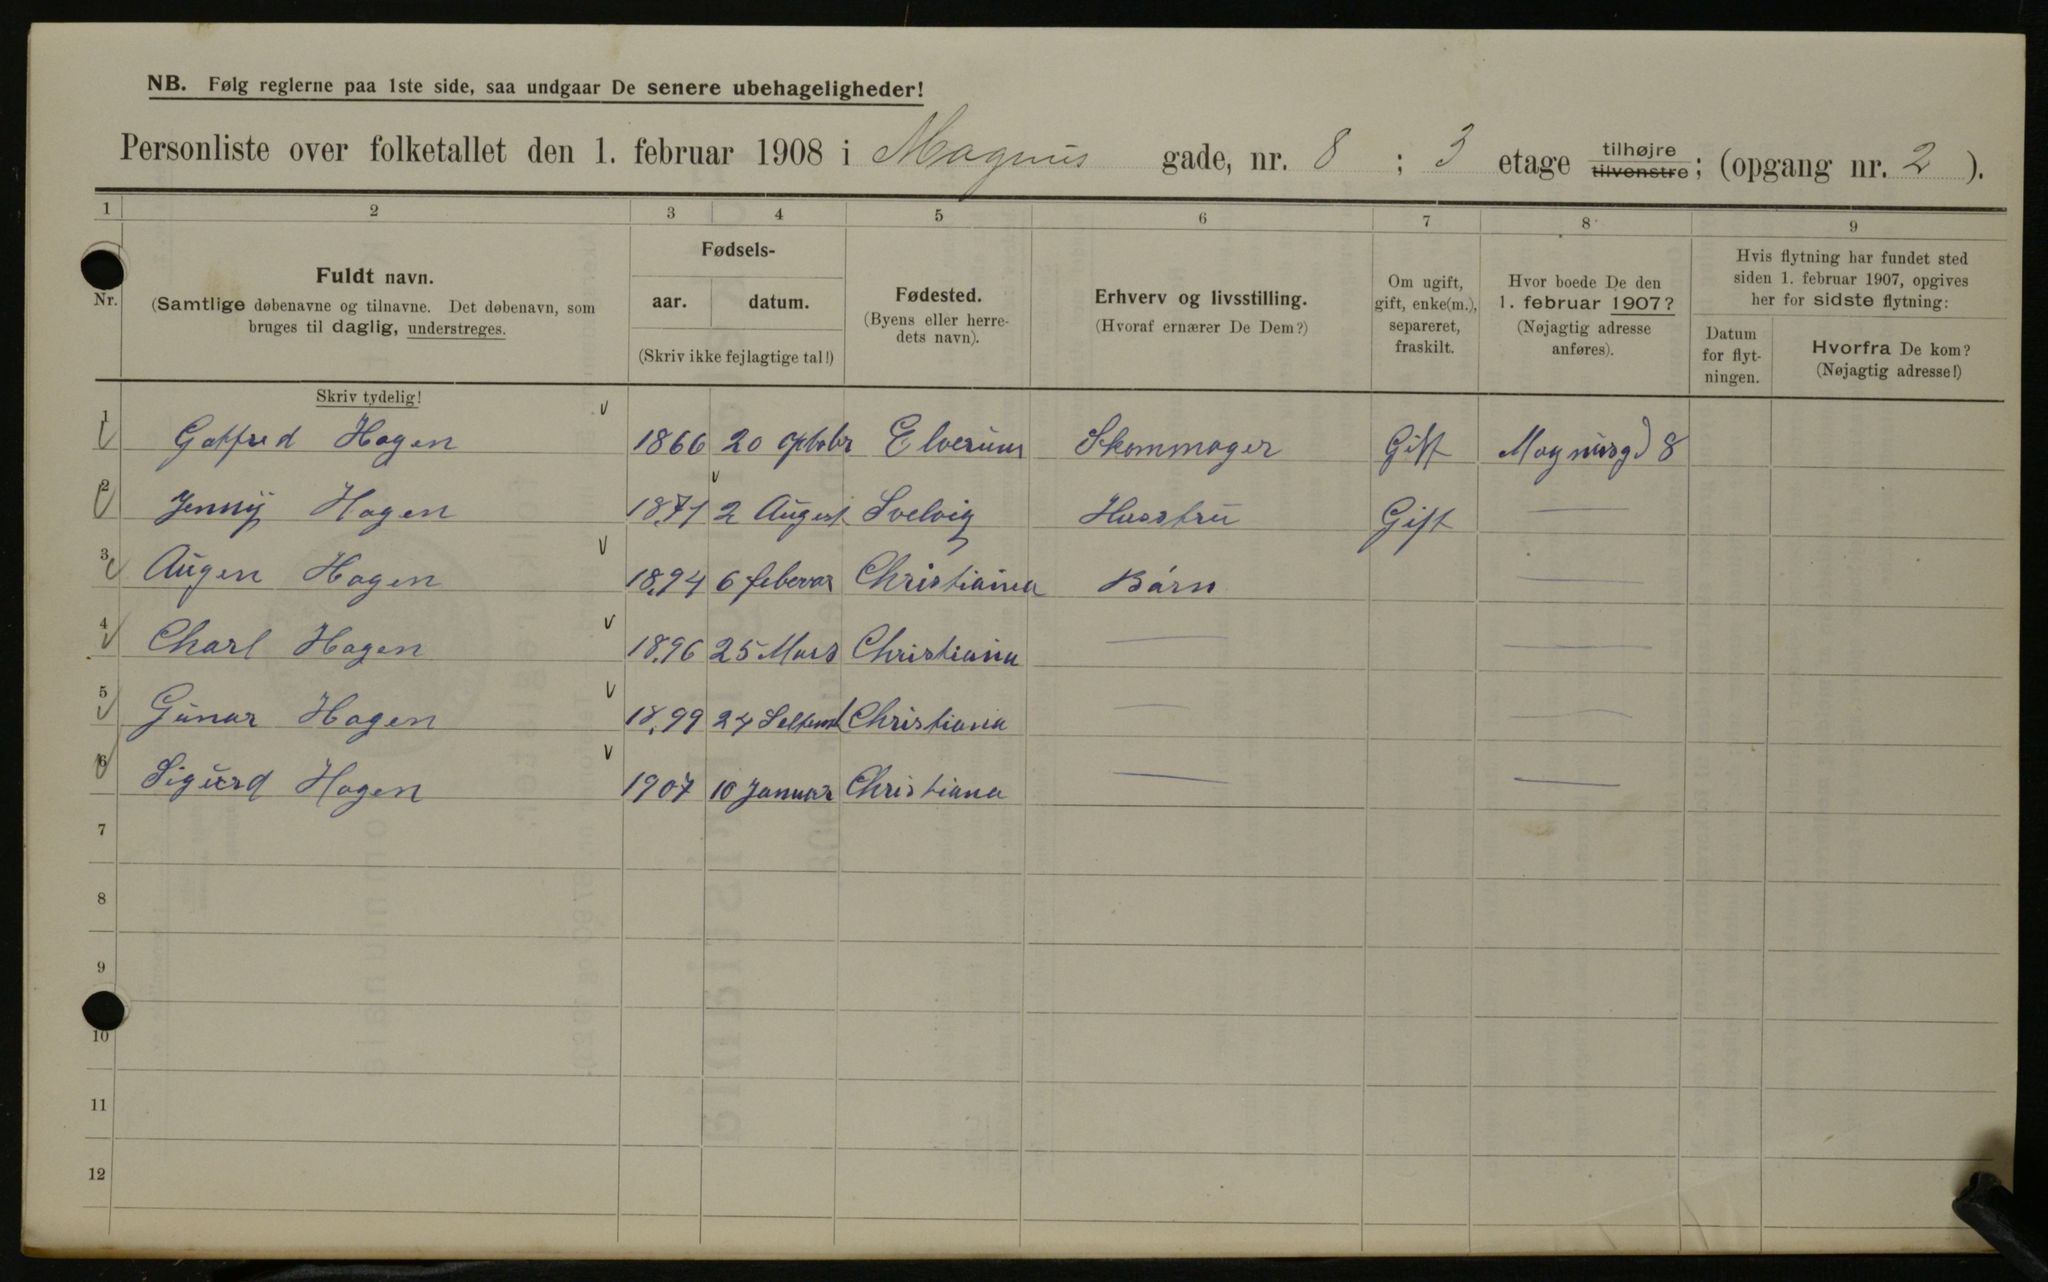 NB. Følg reglerne paa 1ste side, saa undgaar De senere ubehageligheder!
Personliste over folketallet den 1. februar 1908 i Magnus gade, nr. 8 ; 3 etage tilhøjre tilvenstre; (opgang nr. 2 ).
1 2 3 4 5 6 7 8 9
Nr.
Fuldt navn.
(Samtlige døbenavne og tilnavne. Det døbenavn, som
bruges til daglig, understreges.
Fødsels-
aar. datum.
(Skriv ikke fejlagtige tal!)
Fødested.
(Byens eller herre-
dets navn).
Erhverv og livsstilling.
(Hvoraf ernærer De Dem?)
Om ugift,
gift, enke(m.),
separeret,
fraskilt.
Hvor boede De den
1. februar 1907?
(Nøjagtig adresse
anføres).
Hvis flytning har fundet sted
siden 1. februar 1907, opgives
her for sidste flytning:
Datum
for flyt-
ningen.
Hvorfra De kom?
(Nøjagtig adresse!)
Skriv tydelig!
1 Gotfred Hagen 1866 20 Elverum Skommager Gift Magnusgd 8
2 Jenny Hagen 1871 2 August Svelvig Husstru Gift —
3 Augen Hagen 1894 6 feberar Christiania Børn —
4 Charl Hagen 1896 25 Mars Christiania — —
5 Gunar Hagen 1899 24 Christiana — —
6 Sigurd Hagen 1907 10 Januar Christiana — —
7
8
9
10
11
12